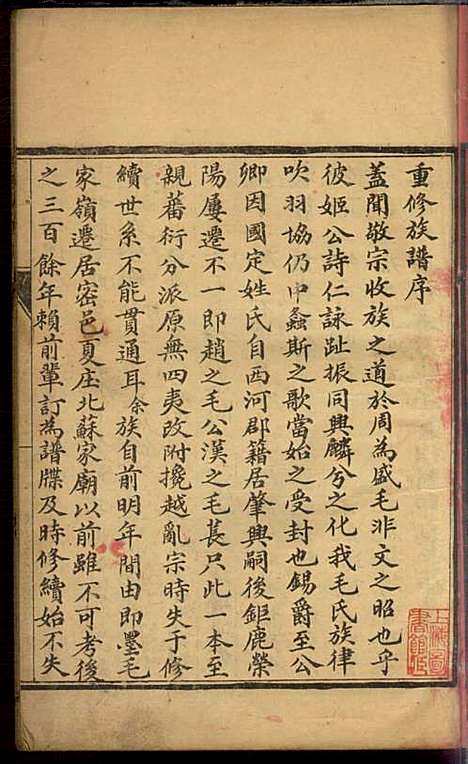 重修族譜序
蓋聞敬宗收族之道於周為盛毛非文之昭也乎
彼姬公詩仁詠趾振同興麟兮之化我毛氏族律
吹羽協仍中螽斯之歌當始之受封也錫爵至公
卿因國定姓氏自西河郡籍居肇興嗣後鉅鹿榮
陽屢遷不一即趙之毛公漢之毛萇只此一本至
親蕃衍分派原無四夷改附攙越亂宗時失于修
續世系不能貫通耳余族自前明年間由即墨毛
家嶺遷居密邑夏庄北蘇家廟以前雖不可考後
之三百餘年賴前輩訂為譜牒及時修續始不失
上海圖
書館藏